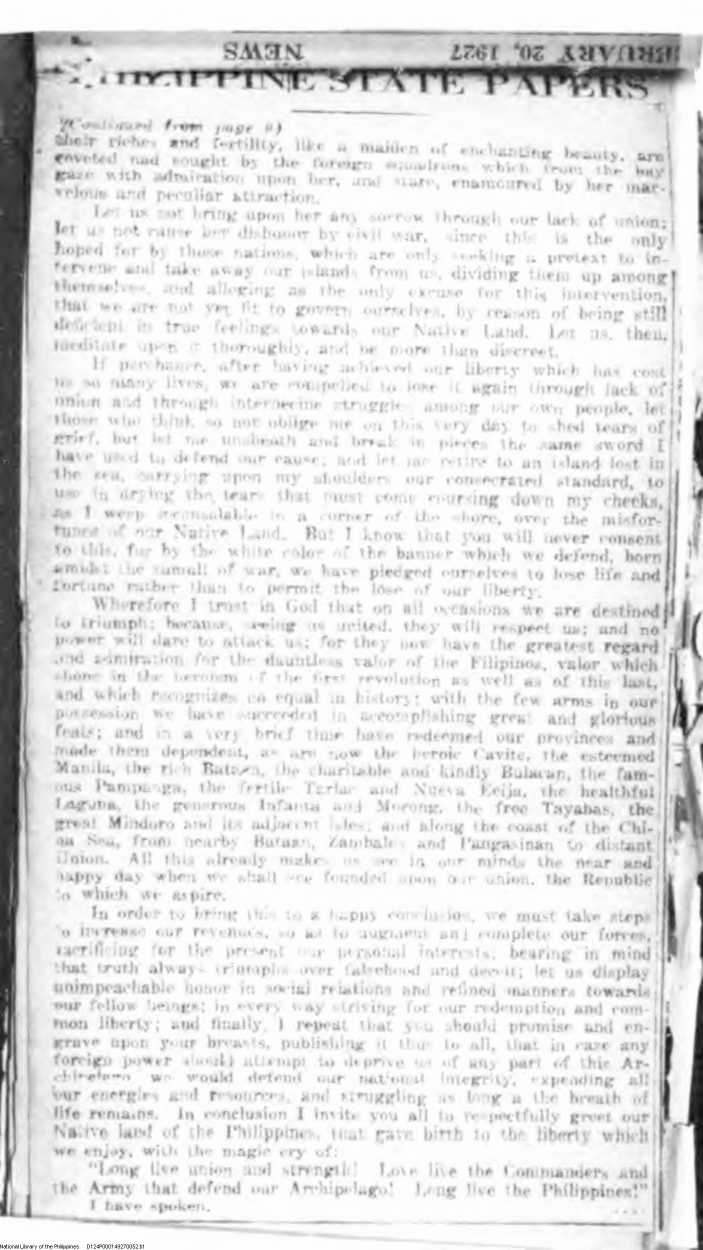 NEWS
FEBRUARY 20, 1927
PHILIPPINE STATE PAPERS
(Continued from page 6)
their riches and fertility, like a maiden of enchanting beauty, are
coveted and sought by the foreign squadrons which from the bay
gaze with admiration upon her, and stare, enamoured by her mar-
velous and peculiar attraction.
Let us not bring upon her any sorrow through our lack of union;
let us not cause her dishonor by civil war, since this is the only
hoped for by those nations, which are only seeking a pretext to in-
tervene and take away our islands from us, dividing them up among
themselves, and alleging as the only excuse for this intervention,
that we are not yet fit to govern ourselves, by reason of being still
deficient in true feelings towards our Native Land. Let us, then,
meditate upon it thoroughly, and be more than discreet.
If perchance, after having achieved our liberty which has cost
us so many lives, we are compelled to lose it again through lack of
union and through internecine struggles among our own people, let
those who think so not oblige me on this very day to shed tears of
grief, but let me unsheath and break in pieces the same sword I
have used to defend our cause; and let me retire to an island lost in
the sea, carrying upon my shoulders our consecrated standard, to
use in drying the tears that must come coursing down my cheeks,
as I weep inconsolable in a corner of the shore, over the misfor-
tunes of our Native Land. But I know that you will never consent
to this, for by the white color of the banner which we defend, born
amidst the tumult of war, we have pledged ourselves to lose life and
fortune rather than to permit the loss of our liberty.
Wherefore I trust in God that on all occasions we are destined
to triumph; because, seeing us united, they will respect us; and no
power will dare to attack us; for they now have the greatest regard
and admiration for the dauntless valor of the Filipinos, valor which
shone in the heroism of the first revolution as well as of this last,
and which recognizes no equal in history; with the few arms in our
possession we have succeeded in accomplishing great and glorious
feats; and in a very brief time have redeemed our provinces and
made them dependent, as are now the heroic Cavite, the esteemed
Manila, the rich Batangas, the charitable and kindly Bulacan, the fam-
ous Pampanga, the fertile Tarlac and Nueva Ecija, the healthful
Laguna, the generous Infanta and Morong, the free Tayabas, the
great Mindoro and its adjacent isles; and along the coast of the Chi-
na Sea, from nearby Bataan, Zambales and Pangasinan to distant
Union. All this already makes us see in our minds the near and
happy day when we shall see founded upon our union, the Republic
to which we aspire.
In order to bring this to a happy conclusion, we must take steps
to increase our revenues, so as to augment and complete our forces,
sacrificing for the present our personal interests; bearing in mind
that truth always triumphs over falsehood and deceit; let us display
unimpeachable honor in social relations and refined manners towards
our fellow beings; in every way striving for our redemption and com-
mon liberty; and finally, I repeat that you should promise and en-
grave upon your breasts, publishing it thus to all, that in case any
foreign power should attempt to deprive us of any part of this Ar-
chipelago we would defend our national integrity, expending all
our energies and resources, and struggling as long a the breath of
life remains. In conclusion I invite you all to respectfully greet our
Native land of the Philippines, that gave birth to the liberty which
we enjoy, with the magic cry of:
"Long live union and strength! Love live the Commanders and
the Army that defend our Archipelago! Long live the Philippines!"
I have spoken.
National Library of the Philippines